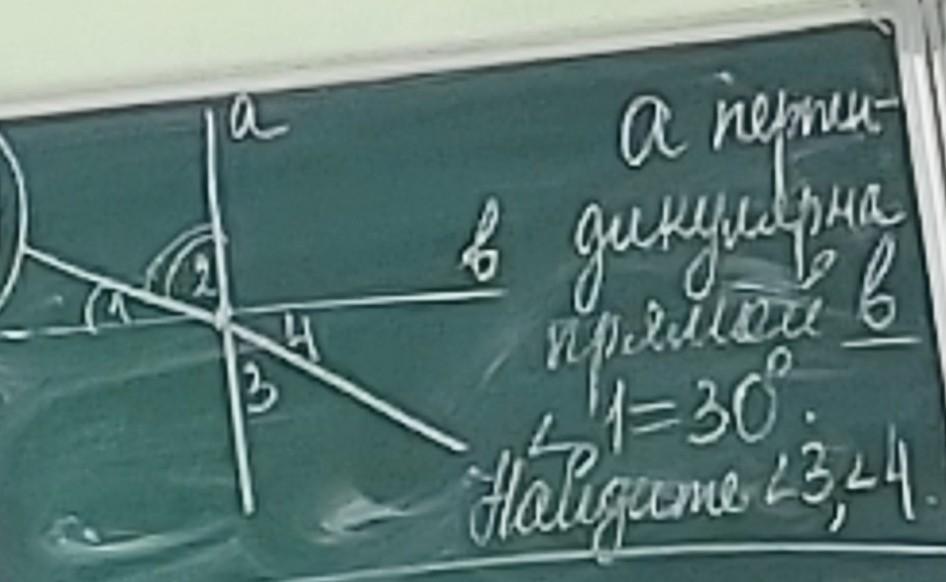 a
в
1
2
3
4
а перпен-
дикулярна
прямой в
∠1=30°.
Найдите ∠3,∠4.